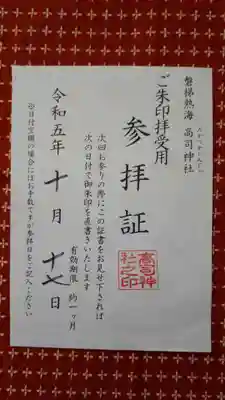 磐梯熱海 高司神社
たかつかさじんじゃ
ご朱印拝受用
参拝証
高司神社之印
次回お参りの際にこの証書をお見せ下されば
次の日付で御朱印を直書きいたします
有効期限 約一ヶ月
令和五年 十月 十七日
⊕日付空欄の場合にはお手数ですが参拝日をご記入ください